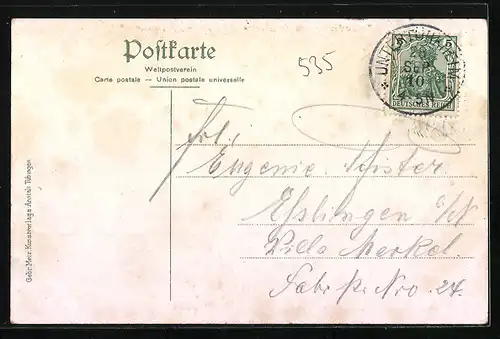 Postkarte
Weltpostverein
Carte postale — Union postale universelle
535
UNTERTÜRKHEIM
SEP
10
DEUTSCHES REICH
Frl.
Eugenie Pfister
Esslingen a/N
Villa Merkel.
Fabrik. Nro. 24.
Gebr. Metz Kunstverlags Anstalt Tübingen